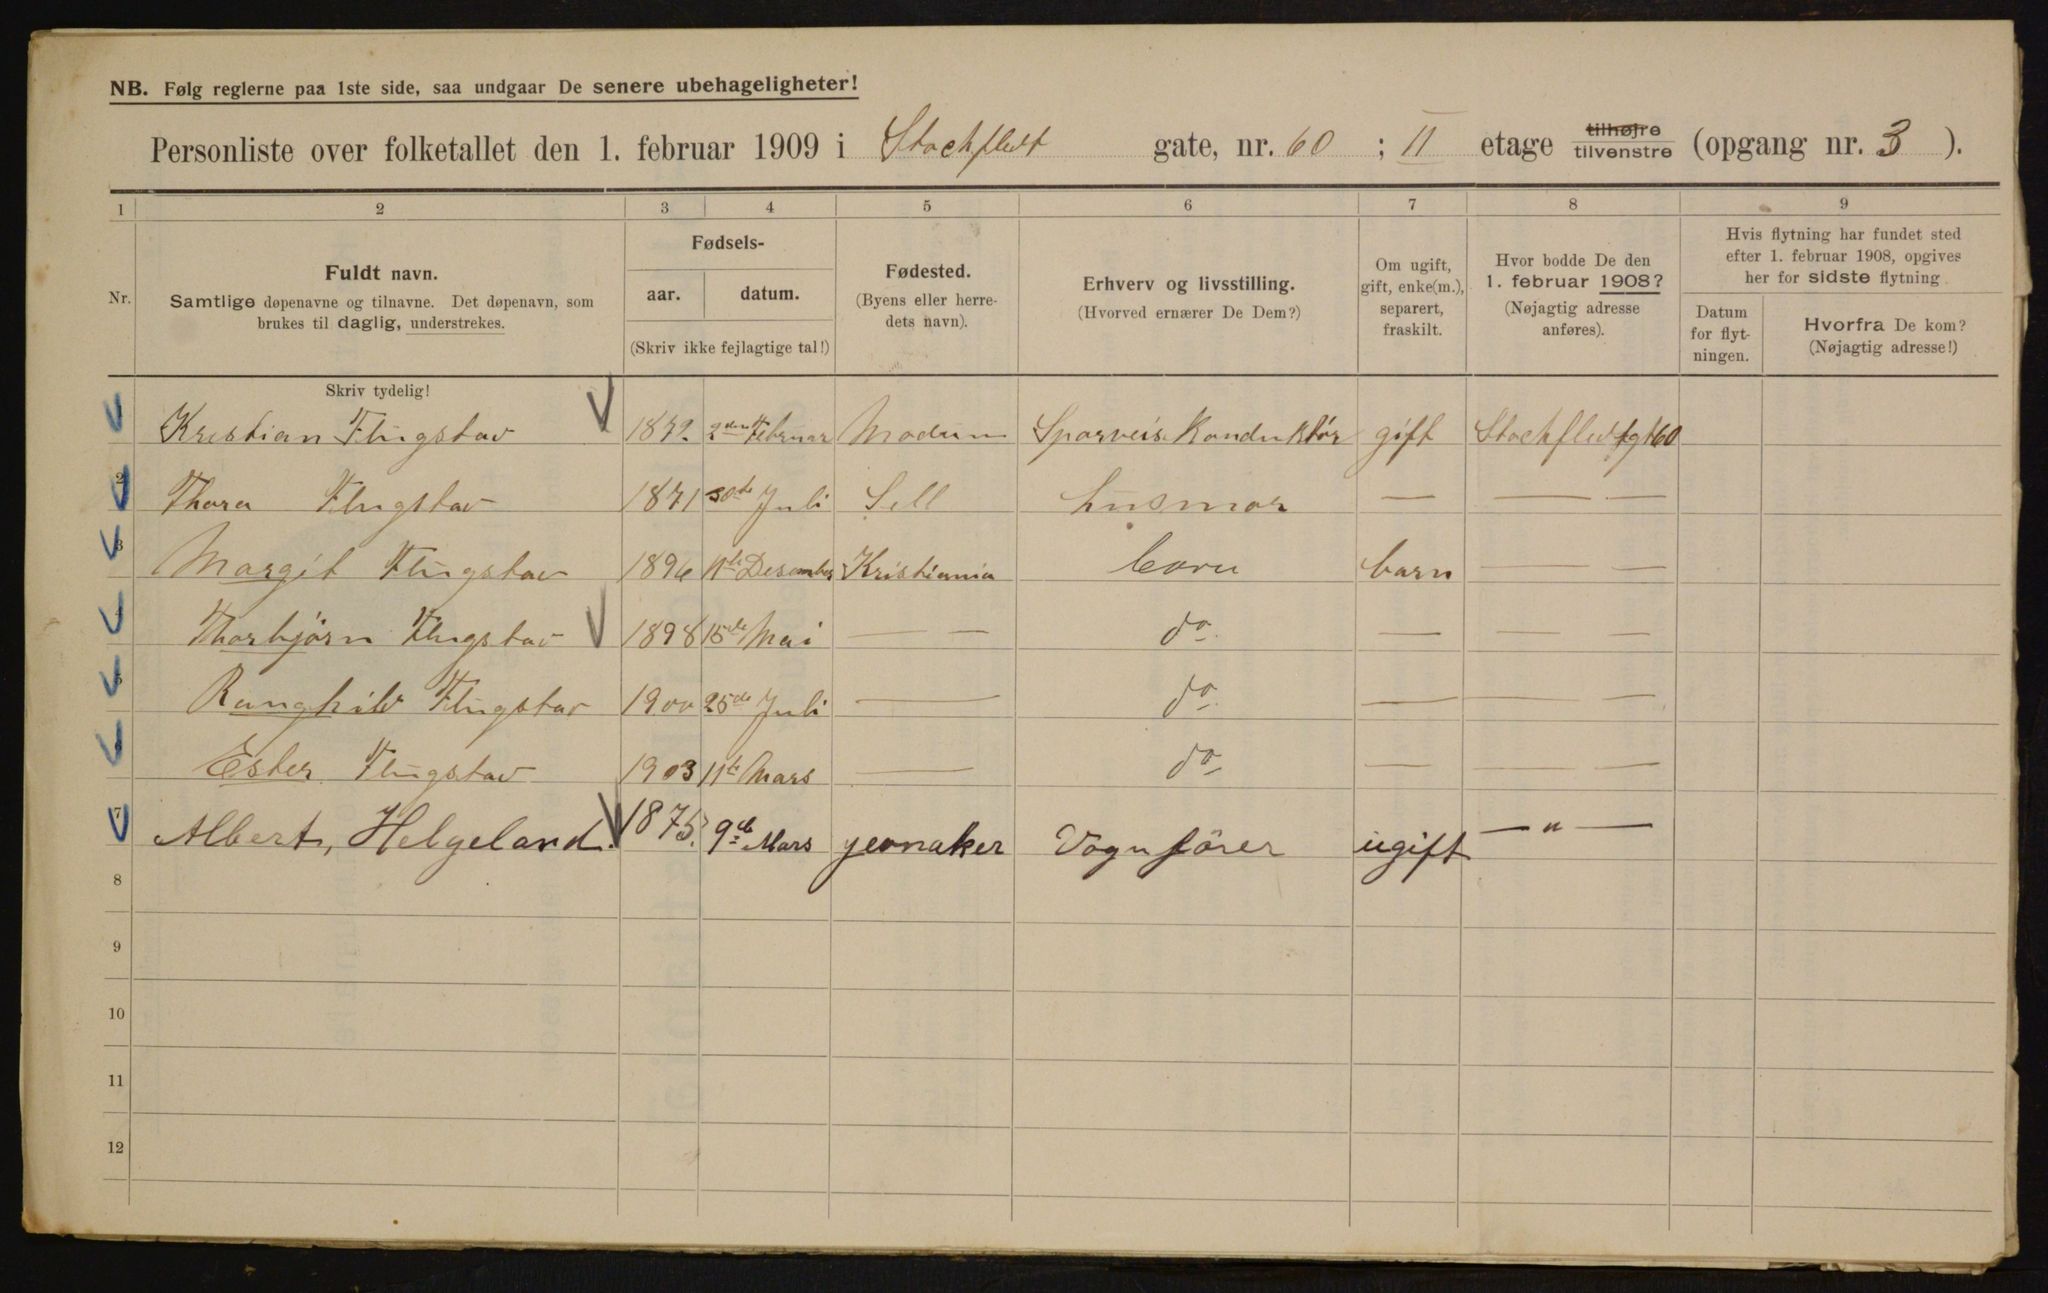 NB. Følg reglerne paa 1ste side, saa undgaar De senere ubehageligheter!
Personliste over folketallet den 1. februar 1909 i Stockfledt gate, nr. 60 ; II etage tilhøjre tilvenstre (opgang nr. 3 ).
1 2 3 4 5 6 7 8 9
Nr.
Fuldt navn.
Samtlige døpenavne og tilnavne. Det døpenavn, som
brukes til daglig, understrekes.
Fødsels-
aar. datum.
(Skriv ikke fejlagtige tal!)
Fødested.
(Byens eller herre-
dets navn).
Erhverv og livsstilling.
(Hvorved ernærer De Dem?)
Om ugift,
gift, enke(m.),
separert,
fraskilt.
Hvor bodde De den
1. februar 1908?
(Nøjagtig adresse
anføres).
Hvis flytning har fundet sted
efter 1. februar 1908, opgives
her for sidste flytning
Datum
for flyt-
ningen.
Hvorfra De kom?
(Nøjagtig adresse!)
Skriv tydelig!
Kristian Flugstav 1872 2den Februar Modum Sporveis Konduktör gift Stockfledtgt 60
2 Thora Flugstav 1871 30te Juli Sell husmor — — —
3 Margit Flugstav 1896 11te Desember Kristiania barn barn — —
Thorbjörn Flugstav 1898 15de Mai — — do — — —
Ranghild Flugstav 1900 25de Juli — do — — —
Ester Flugstav 1903 11te Mars — do — — —
7 Albert, Helgeland. 1875. 9de Mars jevnaker Vognförer ugift — " —
8
9
10
11
12